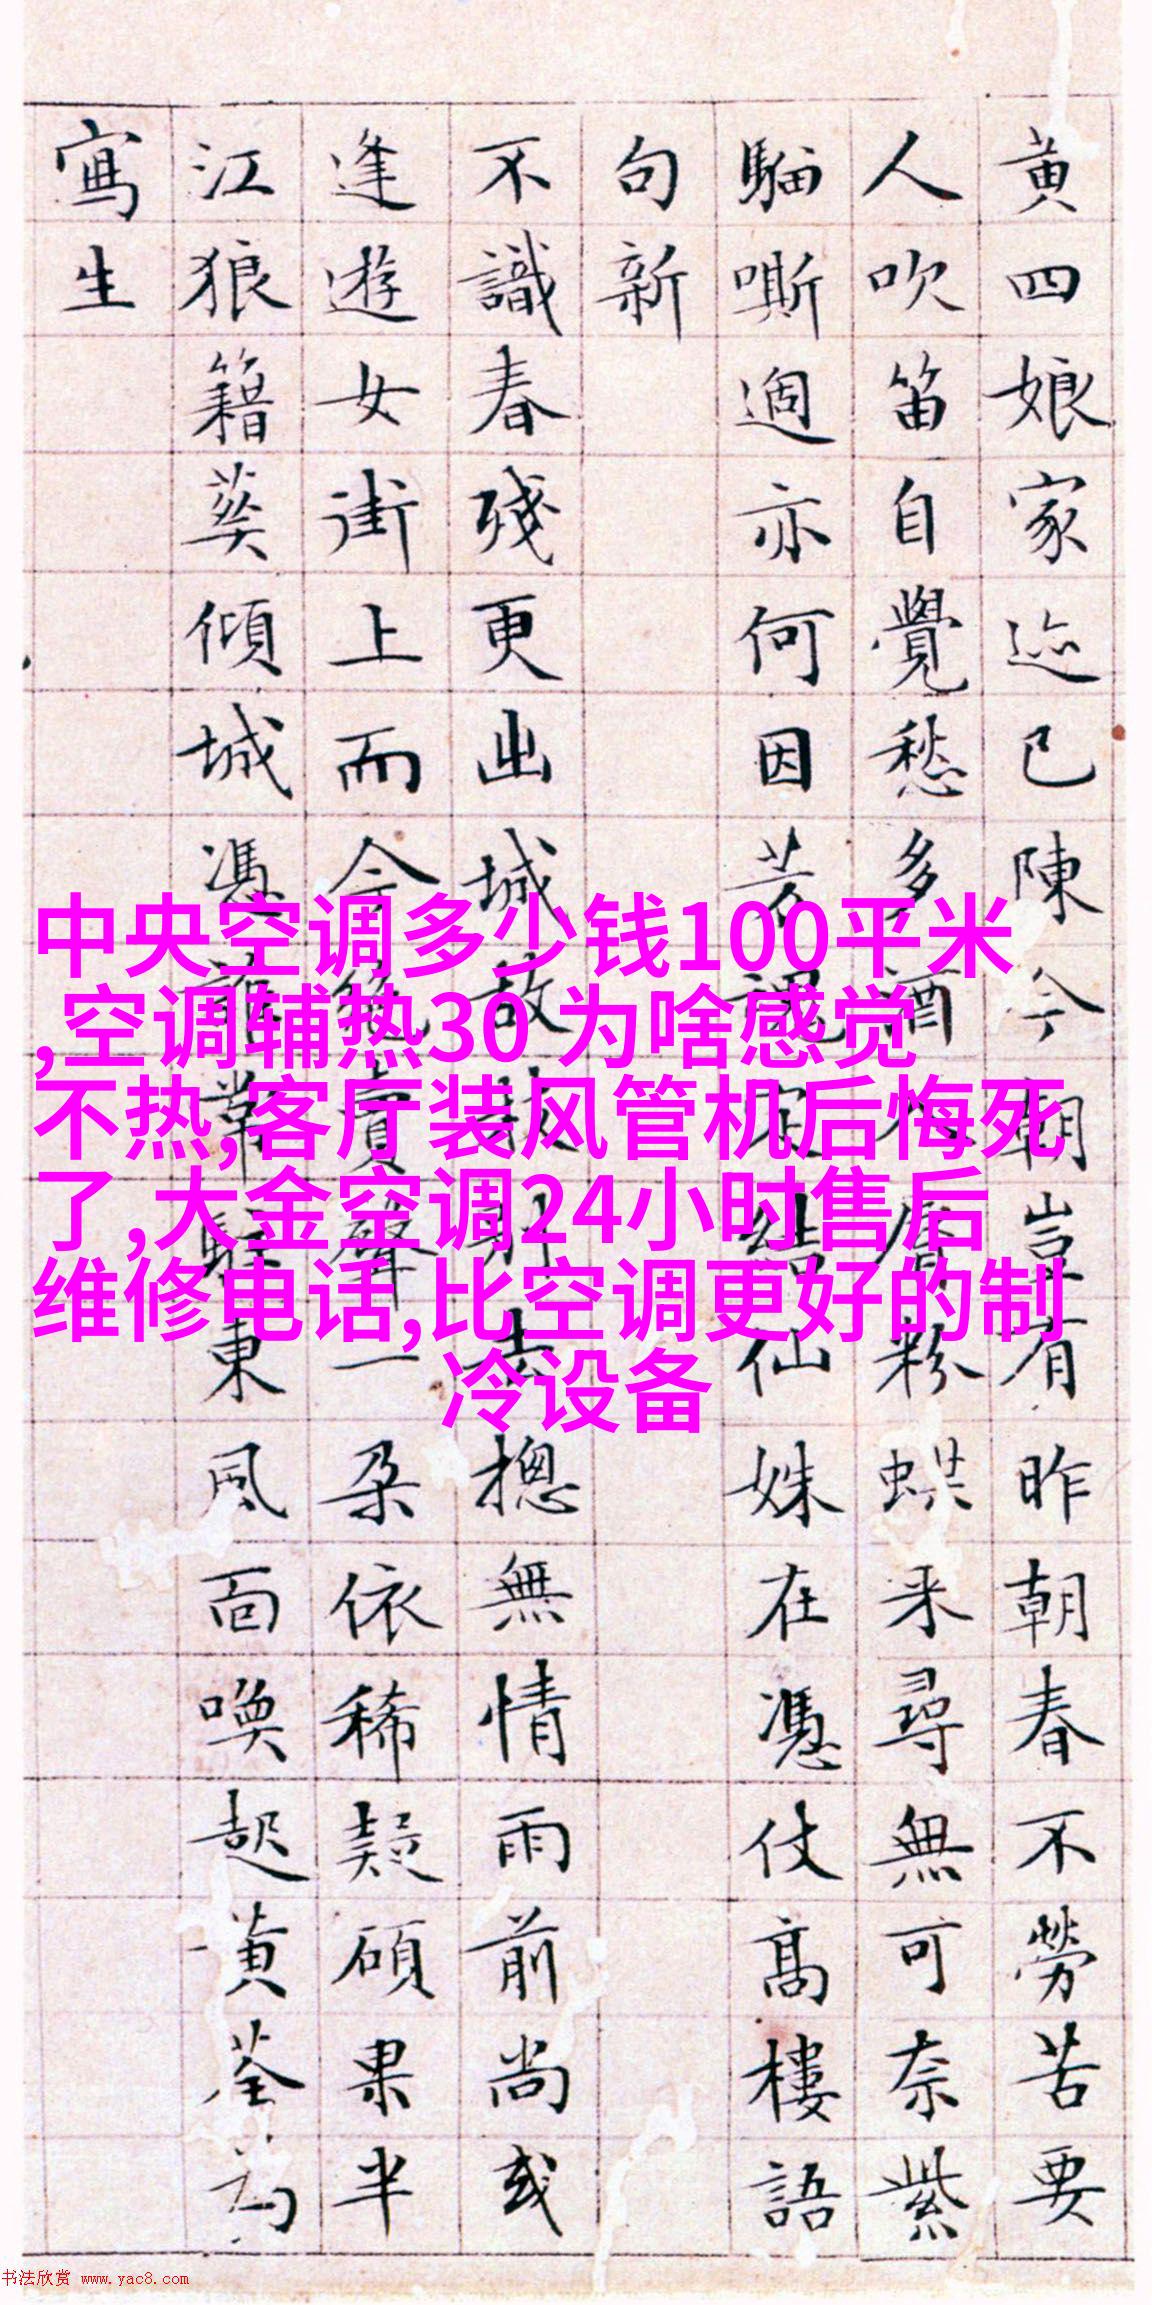 黄四娘家迹已陳今朝豈有昨朝春不勞苦要
人吹笛自覺愁多酒粉来尋無可奈紫
騮嘶過亦何因芳魂結仙姝在憑仗高樓語
句新
不識春殘更出城故去揔無情雨前尚或
逢遊女街上而今絶賣聲一朶依稀疑碩果半
江狼籍葵傾城憑誰東風面喚起黄荃為
寫生
中央空调多少钱100平米
,空调辅热30 为啥感觉
不热,客厅装风管机后悔死
了,大金空调24小时售后
维修电话,比空调更好的制
冷设备
书法欣赏 www.yac8.com